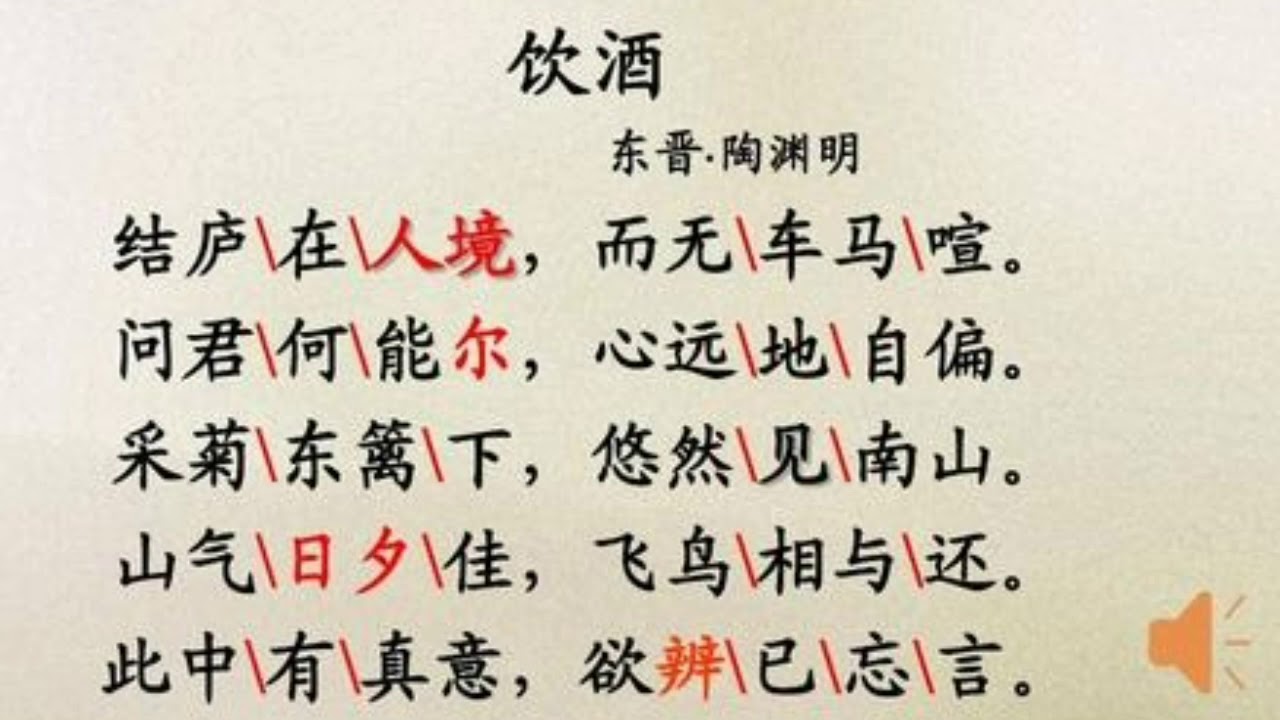 饮酒
东晋·陶渊明
结庐\在\人境，而无\车马\喧。
问君\何\能尔，心远\地\自偏。
采菊\东篱\下，悠然\见\南山。
山气\日夕\佳，飞鸟\相与\还。
此中\有\真意，欲辨\已\忘\言。